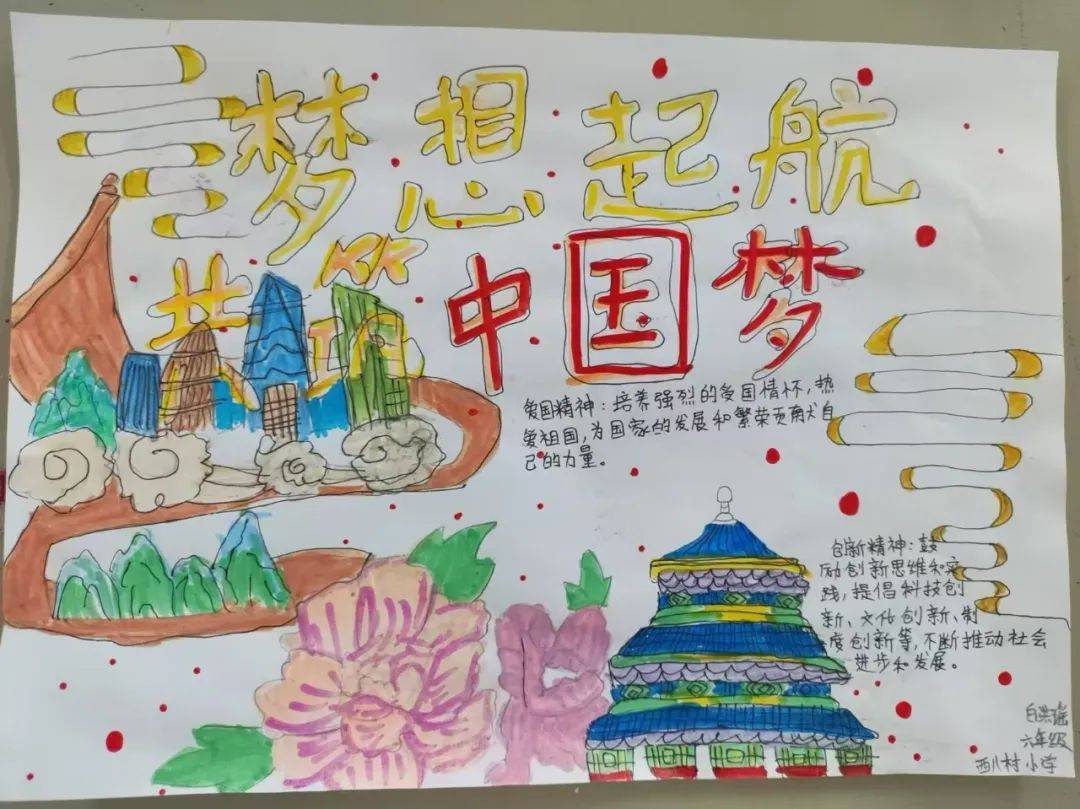 梦想起航
共筑
中国梦
爱国精神：培养强烈的爱国情怀，热
爱祖国，为国家的发展和繁荣贡献自
己的力量。
创新精神：鼓
励创新思维和实
践，提倡科技创
新、文化创新、制
度创新等，不断推动社会
进步和发展。
六年级
西川村小学